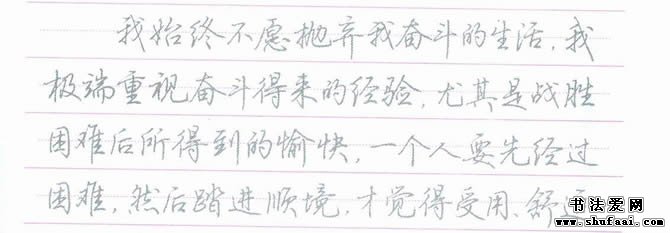 我始终不愿抛弃我奋斗的生活，我
极端重视奋斗得来的经验，尤其是战胜
困难后所得到的愉快，一个人要先经过
困难，然后踏进顺境，才觉得受用、舒适
书法爱网
www.shufaai.com